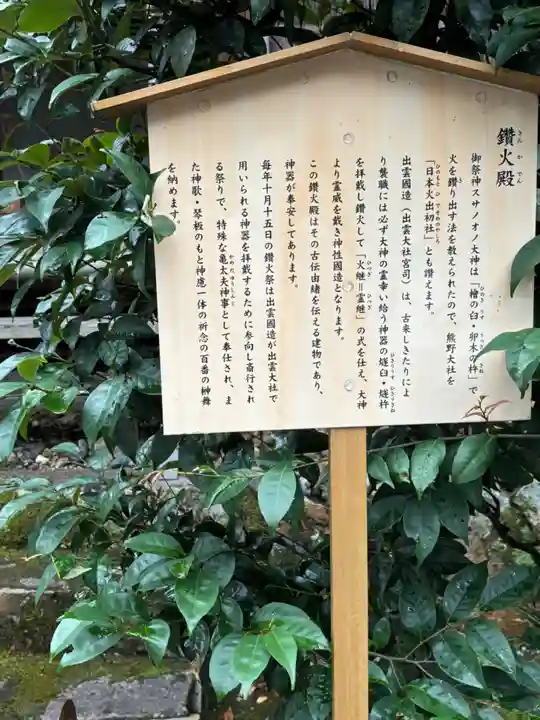 鑽火殿
さんかでん
御祭神スサノオノ大神は「檜の臼・卯木の杵」で
火を鑽り出す法を教えられたので、熊野大社を
「日本火出初社」とも讃えます。
ひのもとひでぞめのやしろ
出雲國造（出雲大社宮司）は、古来しきたりによ
り襲職には必ず大神の霊幸い給う神器の燧臼・燧杵
を拝戴し鑽火して「火継＝霊継」の式を仕え、大神
より霊威を戴き神性國造となります。
この鑽火殿はその古伝由緒を伝える建物であり、
神器が奉安してあります。
毎年十月十五日の鑽火祭は出雲國造が出雲大社で
用いられる神器を拝戴するために参向し斎行され
る祭りで、特殊な亀太夫神事として奉仕され、ま
た神歌・琴板のもと神慮一体の祈念の百番の榊舞
を納めます。